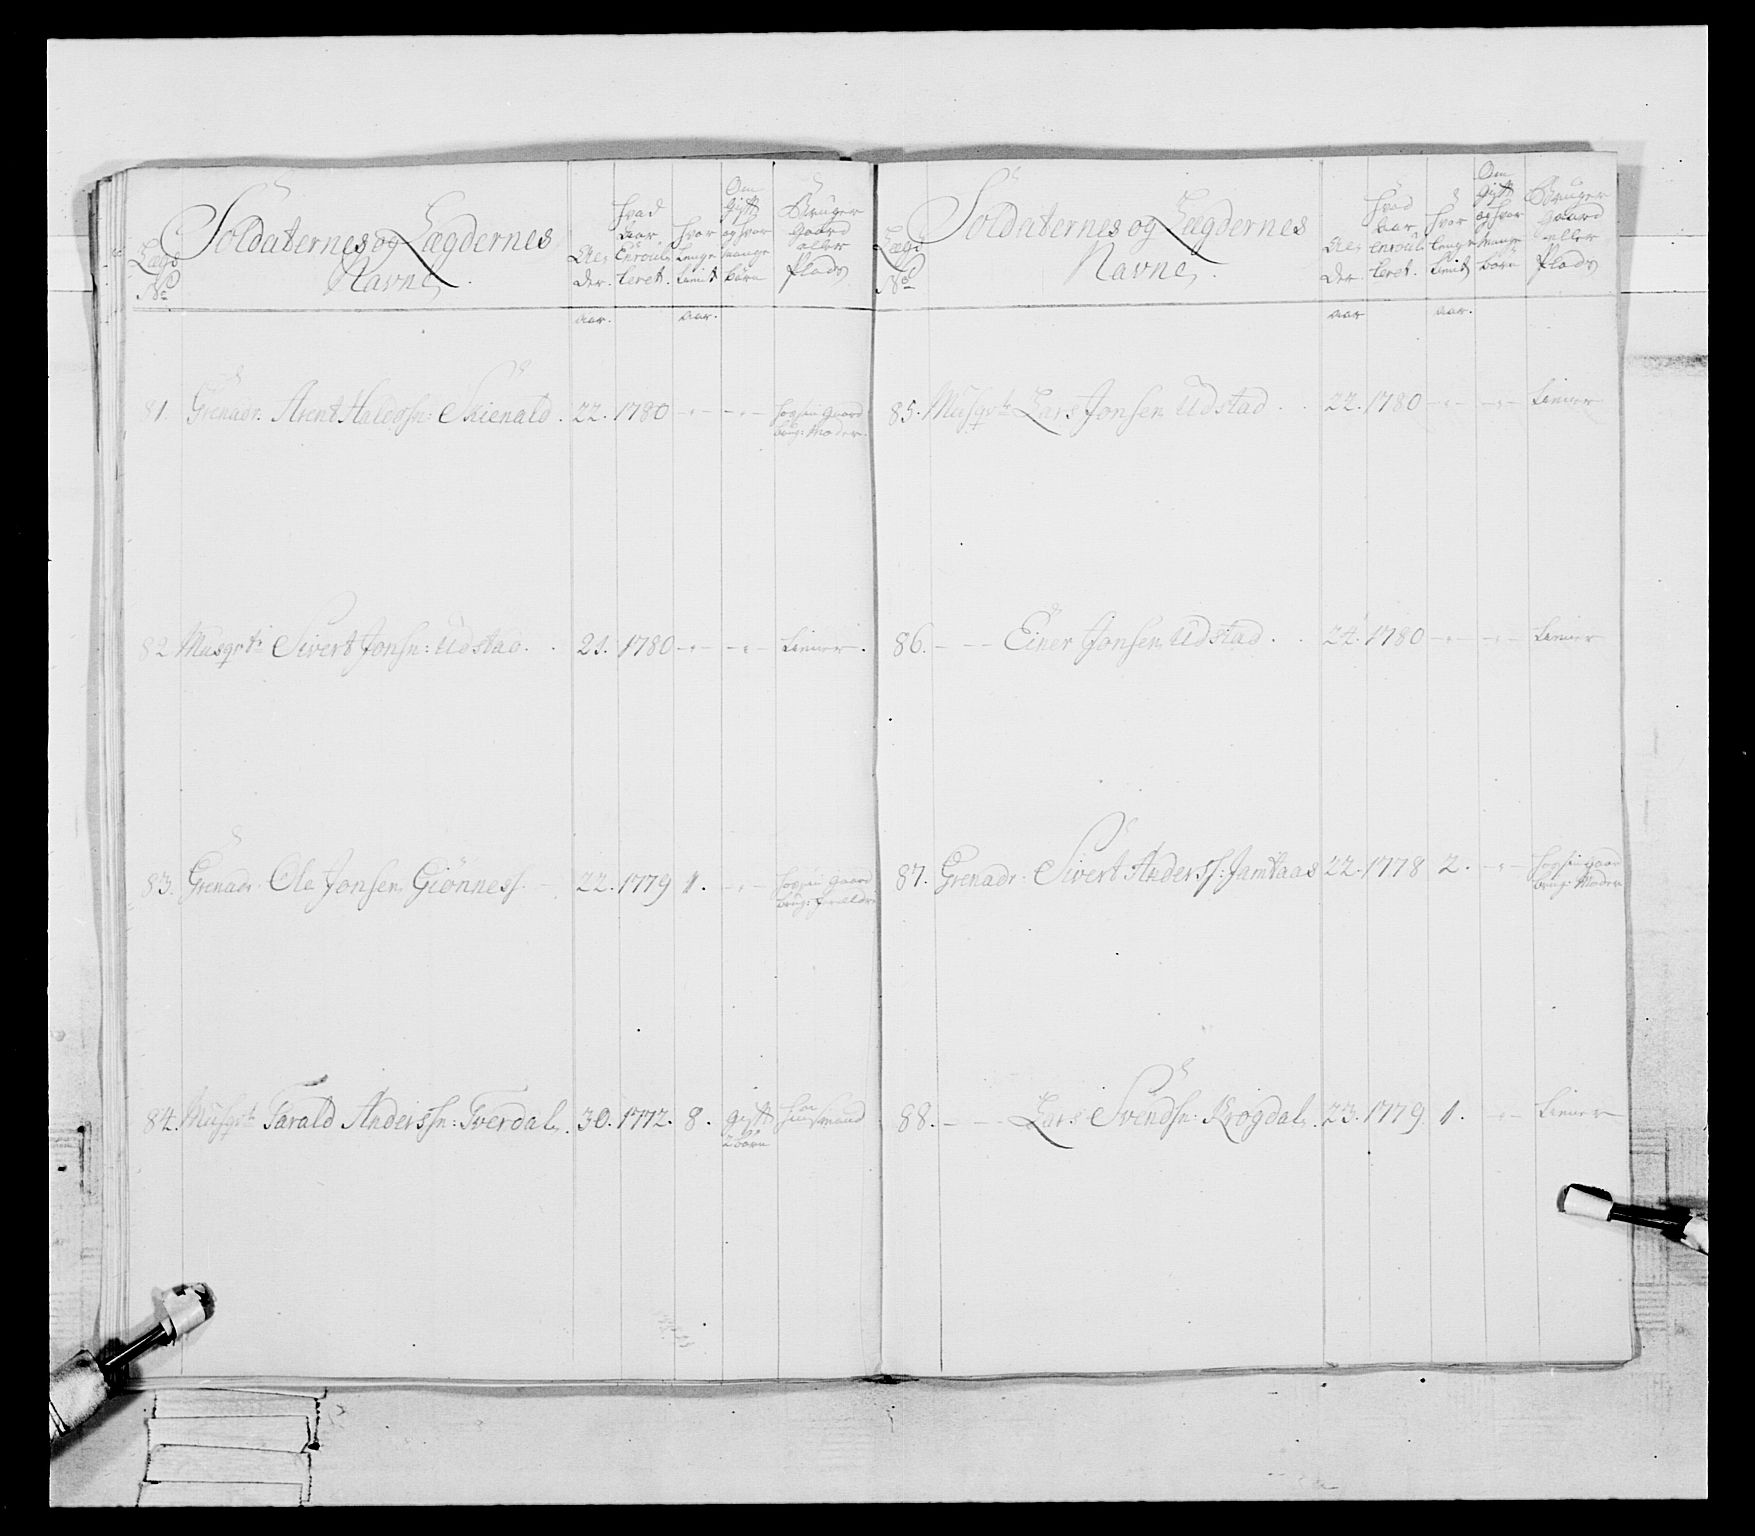 Lægd No Soldaternes og Lægdernes Navne Alder. hvad Aar Enroulleret. hvor Lenge tient Om Gift og hvor mange børn Bruger Gaard eller Plads
aar. aar.
81. Grenadr. Arent Haldosn: Skienald. 22. 1780 - " - - " - hos sin Gaard brug: Moder.
82 Musqrt: Sivert Jonsn: Udstad. 21. 1780 - " - - " - tiener.
83. Grenadr. Ole Jonsen Giönness. 22. 1779 1. - " - hos sin Gaard brug: Forældre
84. Musqrt: Tarald Anderssn: Tverdal. 30. 1772. 8. gift 2 børn Huusmand
Lægd No Soldaternes og Lægdernes Navne. Alder. hvad Aar Enroulleret. hvor Lenge tient Om Gift og hvor mange børn Bruger Gaard eller Plads
aar aar.
85. Musqrt: Lars Jonsen Udstad. 22. 1780 - " - - " - tiener
86. - - Einer Jonsen Udstad. 24. 1780 - " - - " - tiener
87. Grenadr. Sivert Anderss: Jamtaas 22. 1778 2. - " - hos sin Gaard brug: Moder
88. - - Lars Svendsn: Krogdal. 23. 1779 1. - " - tiener